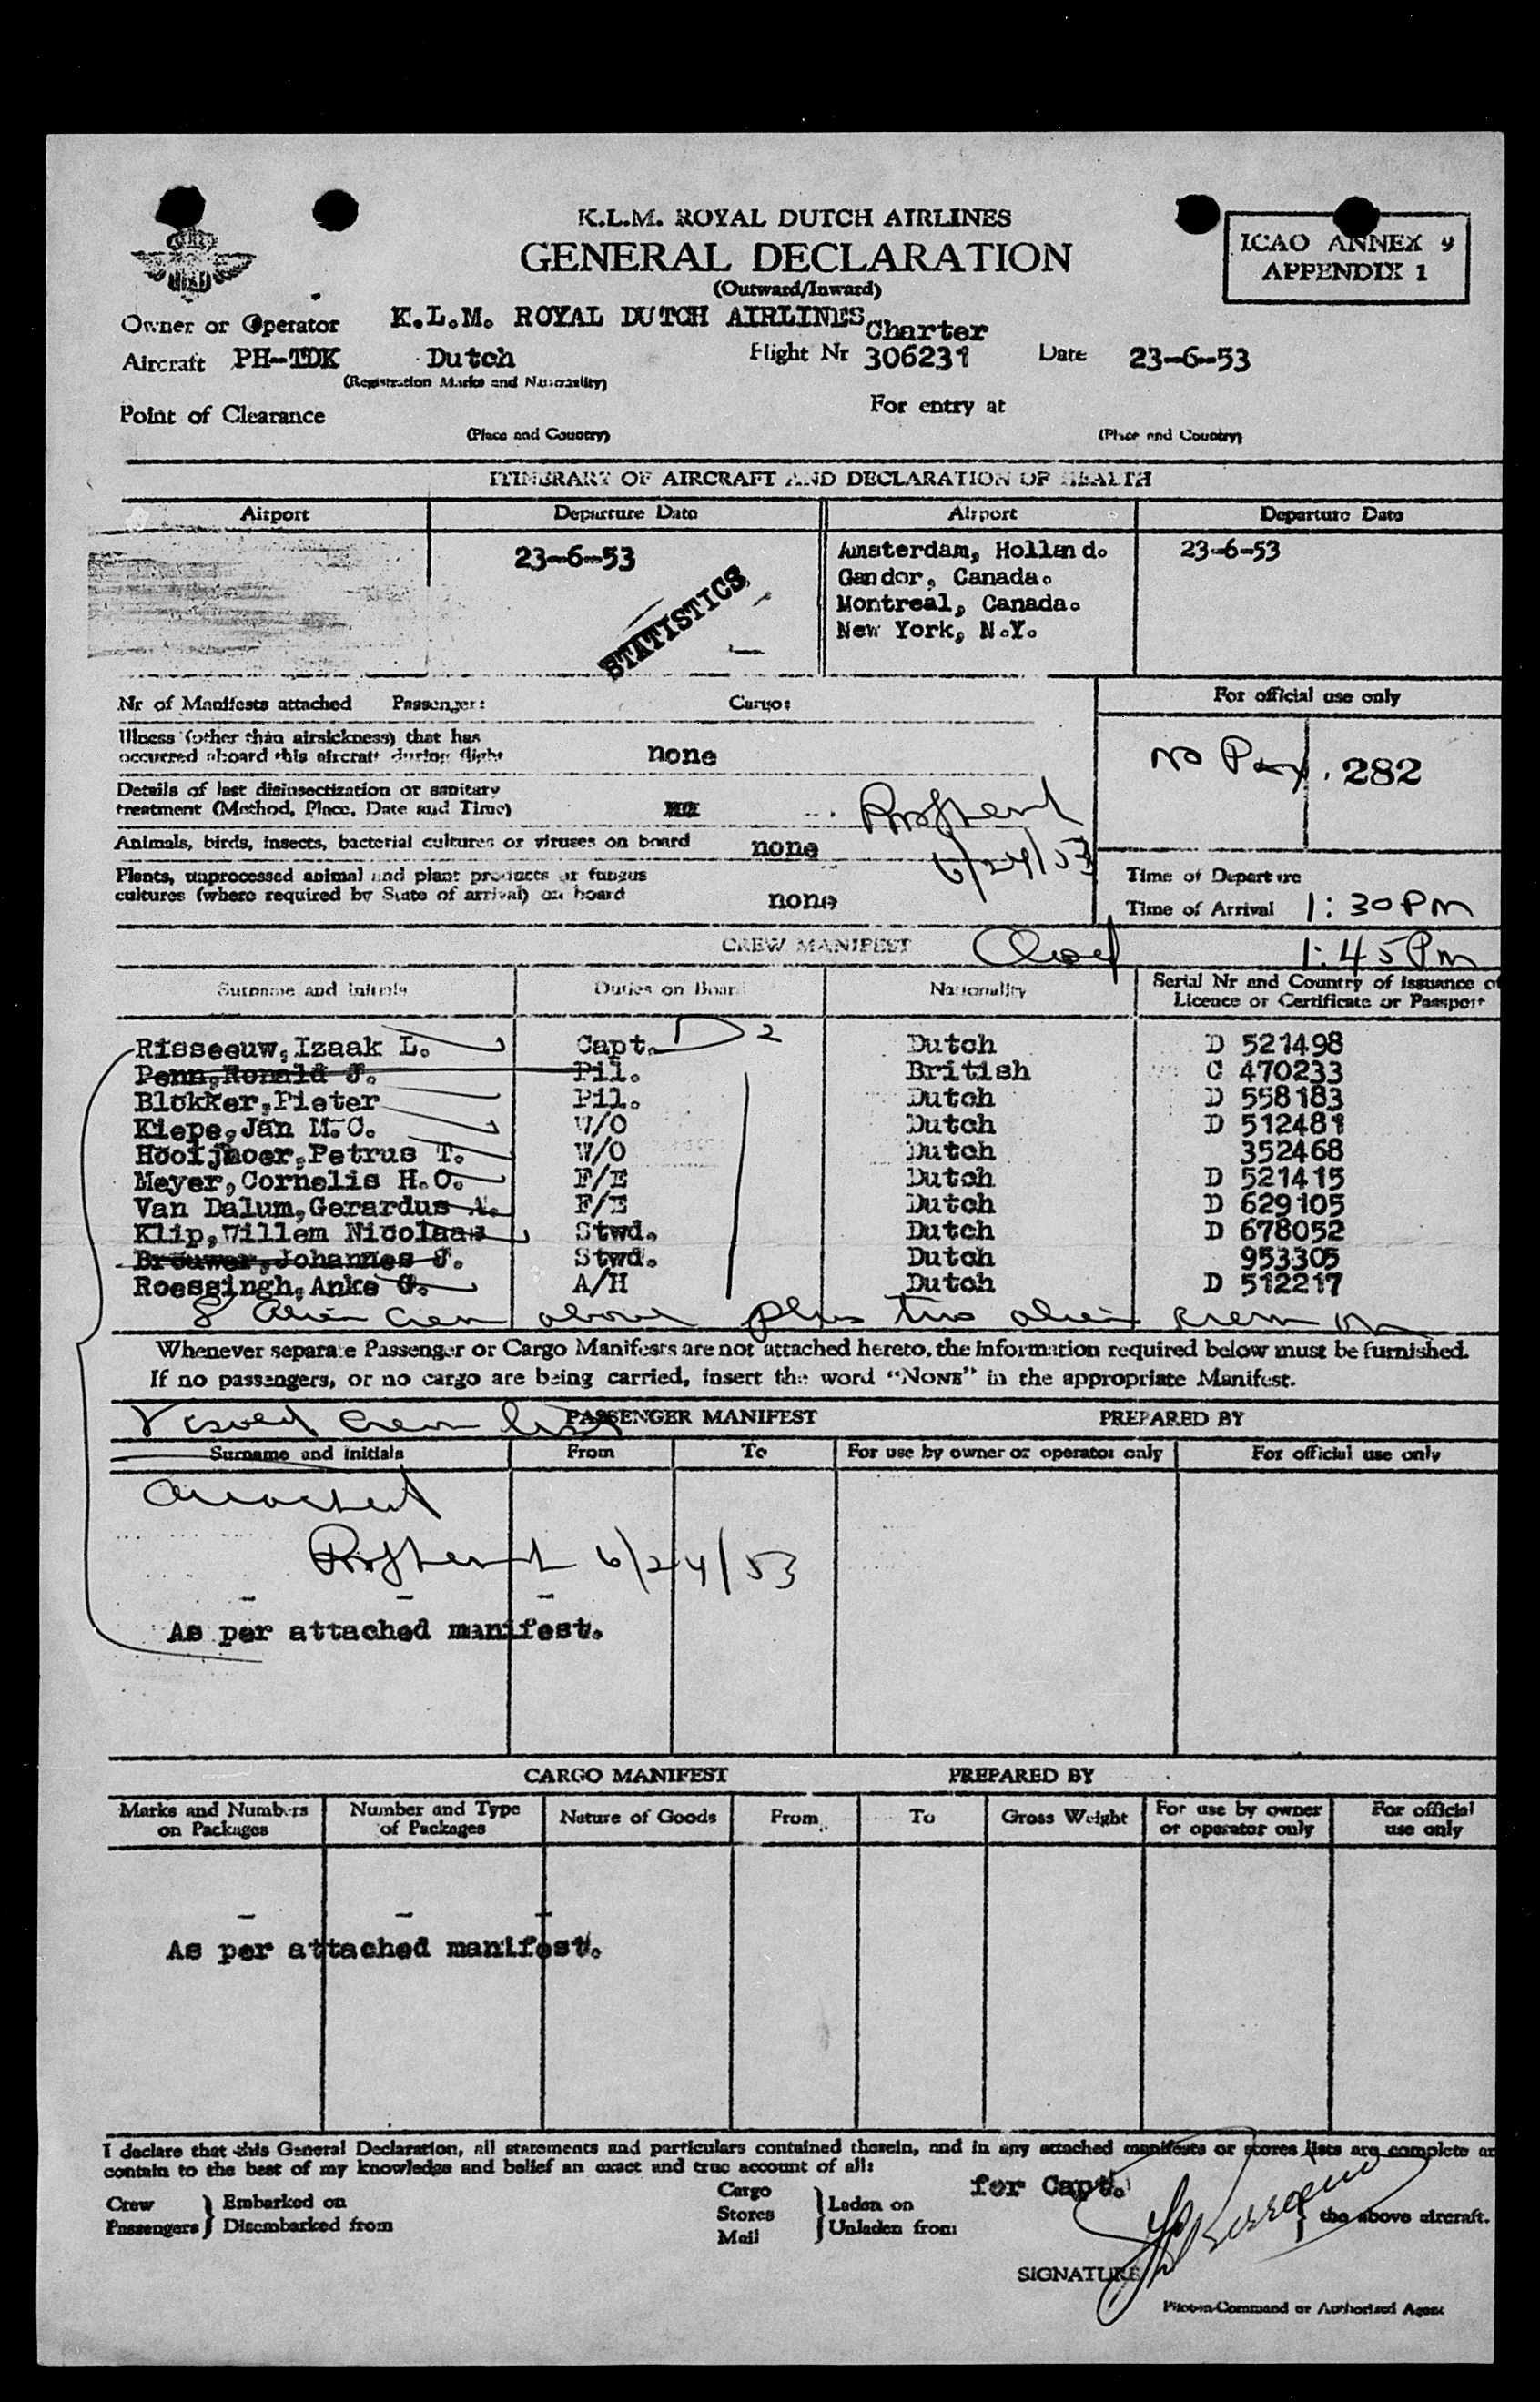 K.L.M. ROYAL DUTCH AIRLINES
GENERAL DECLARATION
(Outward/Inward)
ICAO ANNEX 9
APPENDIX 1
Owner or Operator K.L.M. ROYAL DUTCH AIRLINES Charter
Aircraft PH-TDK Dutch Flight Nr 306231 Date 23-6-53
(Registration Marks and Nationality)
Point of Clearance For entry at
(Place and Country) (Place and Country)
ITINERARY OF AIRCRAFT AND DECLARATION OF HEALTH
Airport Departure Date Airport Departure Date
23-6-53 Amsterdam, Holland. 23-6-53
Gandor, Canada.
Montreal, Canada.
New York, N.Y.
STATISTICS
Nr of Manifests attached Passenger: Cargo:
For official use only
Illness (other than airsickness) that has
occurred aboard this aircraft during flight none
no Pax. 282
Details of last disinsectization or sanitary
treatment (Method, Place, Date and Time)
Animals, birds, insects, bacterial cultures or viruses on board none
6/24/53
Plants, unprocessed animal and plant products or fungus
cultures (where required by State of arrival) on board none
Time of Departure
Time of Arrival 1:30 PM
CREW MANIFEST 1:45 PM
Surname and Initials Duties on Board Nationality Serial Nr and Country of Issuance of
Licence or Certificate or Passport
Risseeuw, Izaak L. Capt. D 2 Dutch D 521498
Penn, Ronald J. Pil. British C 470233
Blokker, Pieter Pil. Dutch D 558183
Kiepe, Jan M.C. W/O Dutch D 512481
Hooijmoer, Petrus T. W/O Dutch 352468
Meyer, Cornelis H.C. F/E Dutch D 521415
Van Dalum, Gerardus A. F/E Dutch D 629105
Klip, Willem Nicolaas Stwd. Dutch D 678052
Brouwer, Johannes J. Stwd. Dutch 953305
Roessingh, Anke G. A/H Dutch D 512217
8 Alien Crew above plus two alien crew on
Whenever separate Passenger or Cargo Manifests are not attached hereto, the information required below must be furnished.
If no passengers, or no cargo are being carried, insert the word "NONE" in the appropriate Manifest.
Visaed crew list
PASSENGER MANIFEST PREPARED BY
Surname and Initials From To For use by owner or operator only For official use only
attached
6/24/53
- - -
As per attached manifest.
CARGO MANIFEST PREPARED BY
Marks and Numbers on Packages Number and Type of Packages Nature of Goods From To Gross Weight For use by owner or operator only For official use only
- - -
As per attached manifest.
I declare that this General Declaration, all statements and particulars contained therein, and in any attached manifests or stores lists are complete an
contain to the best of my knowledge and belief an exact and true account of all:
for Capt.
Crew Embarked on Cargo Laden on
Passengers Disembarked from Stores Unladen from the above aircraft.
Mail
SIGNATURE
Pilot-in-Command or Authorised Agent